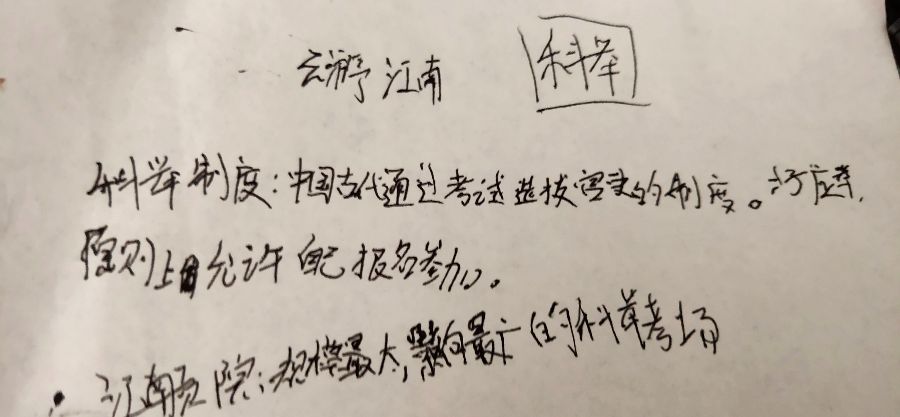 云游江南 科举
科举制度：中国古代通过考试选拔官吏的制度。
原则上允许自己报名参加。
江南贡院：规模最大，影响最广的科举考场